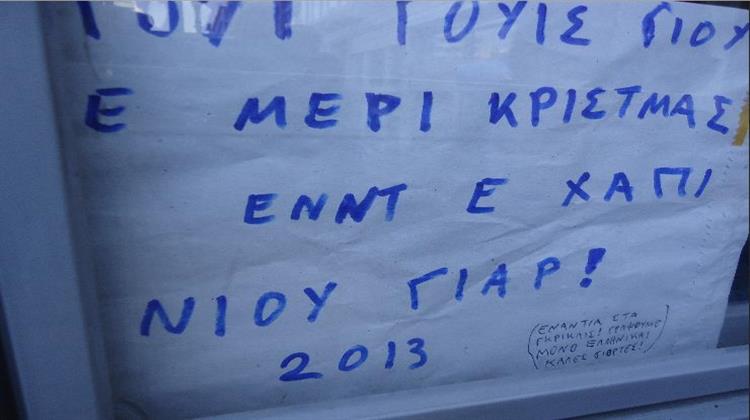 ΓΟΥΙΣ ΓΙΟΥ
Ε ΜΕΡΙ ΚΡΙΣΤΜΑΣ
ΕΝΝΤ Ε ΧΑΠΙ
ΝΙΟΥ ΓΙΑΡ!
2013
(ΕΝΑΝΤΙΑ ΣΤΑ
ΓΚΡΙΚΛΙΣ! ΓΡΑΦΟΥΜΕ
ΜΟΝΟ ΕΛΛΗΝΙΚΑ!
ΚΑΛΕΣ ΓΙΟΡΤΕΣ!)